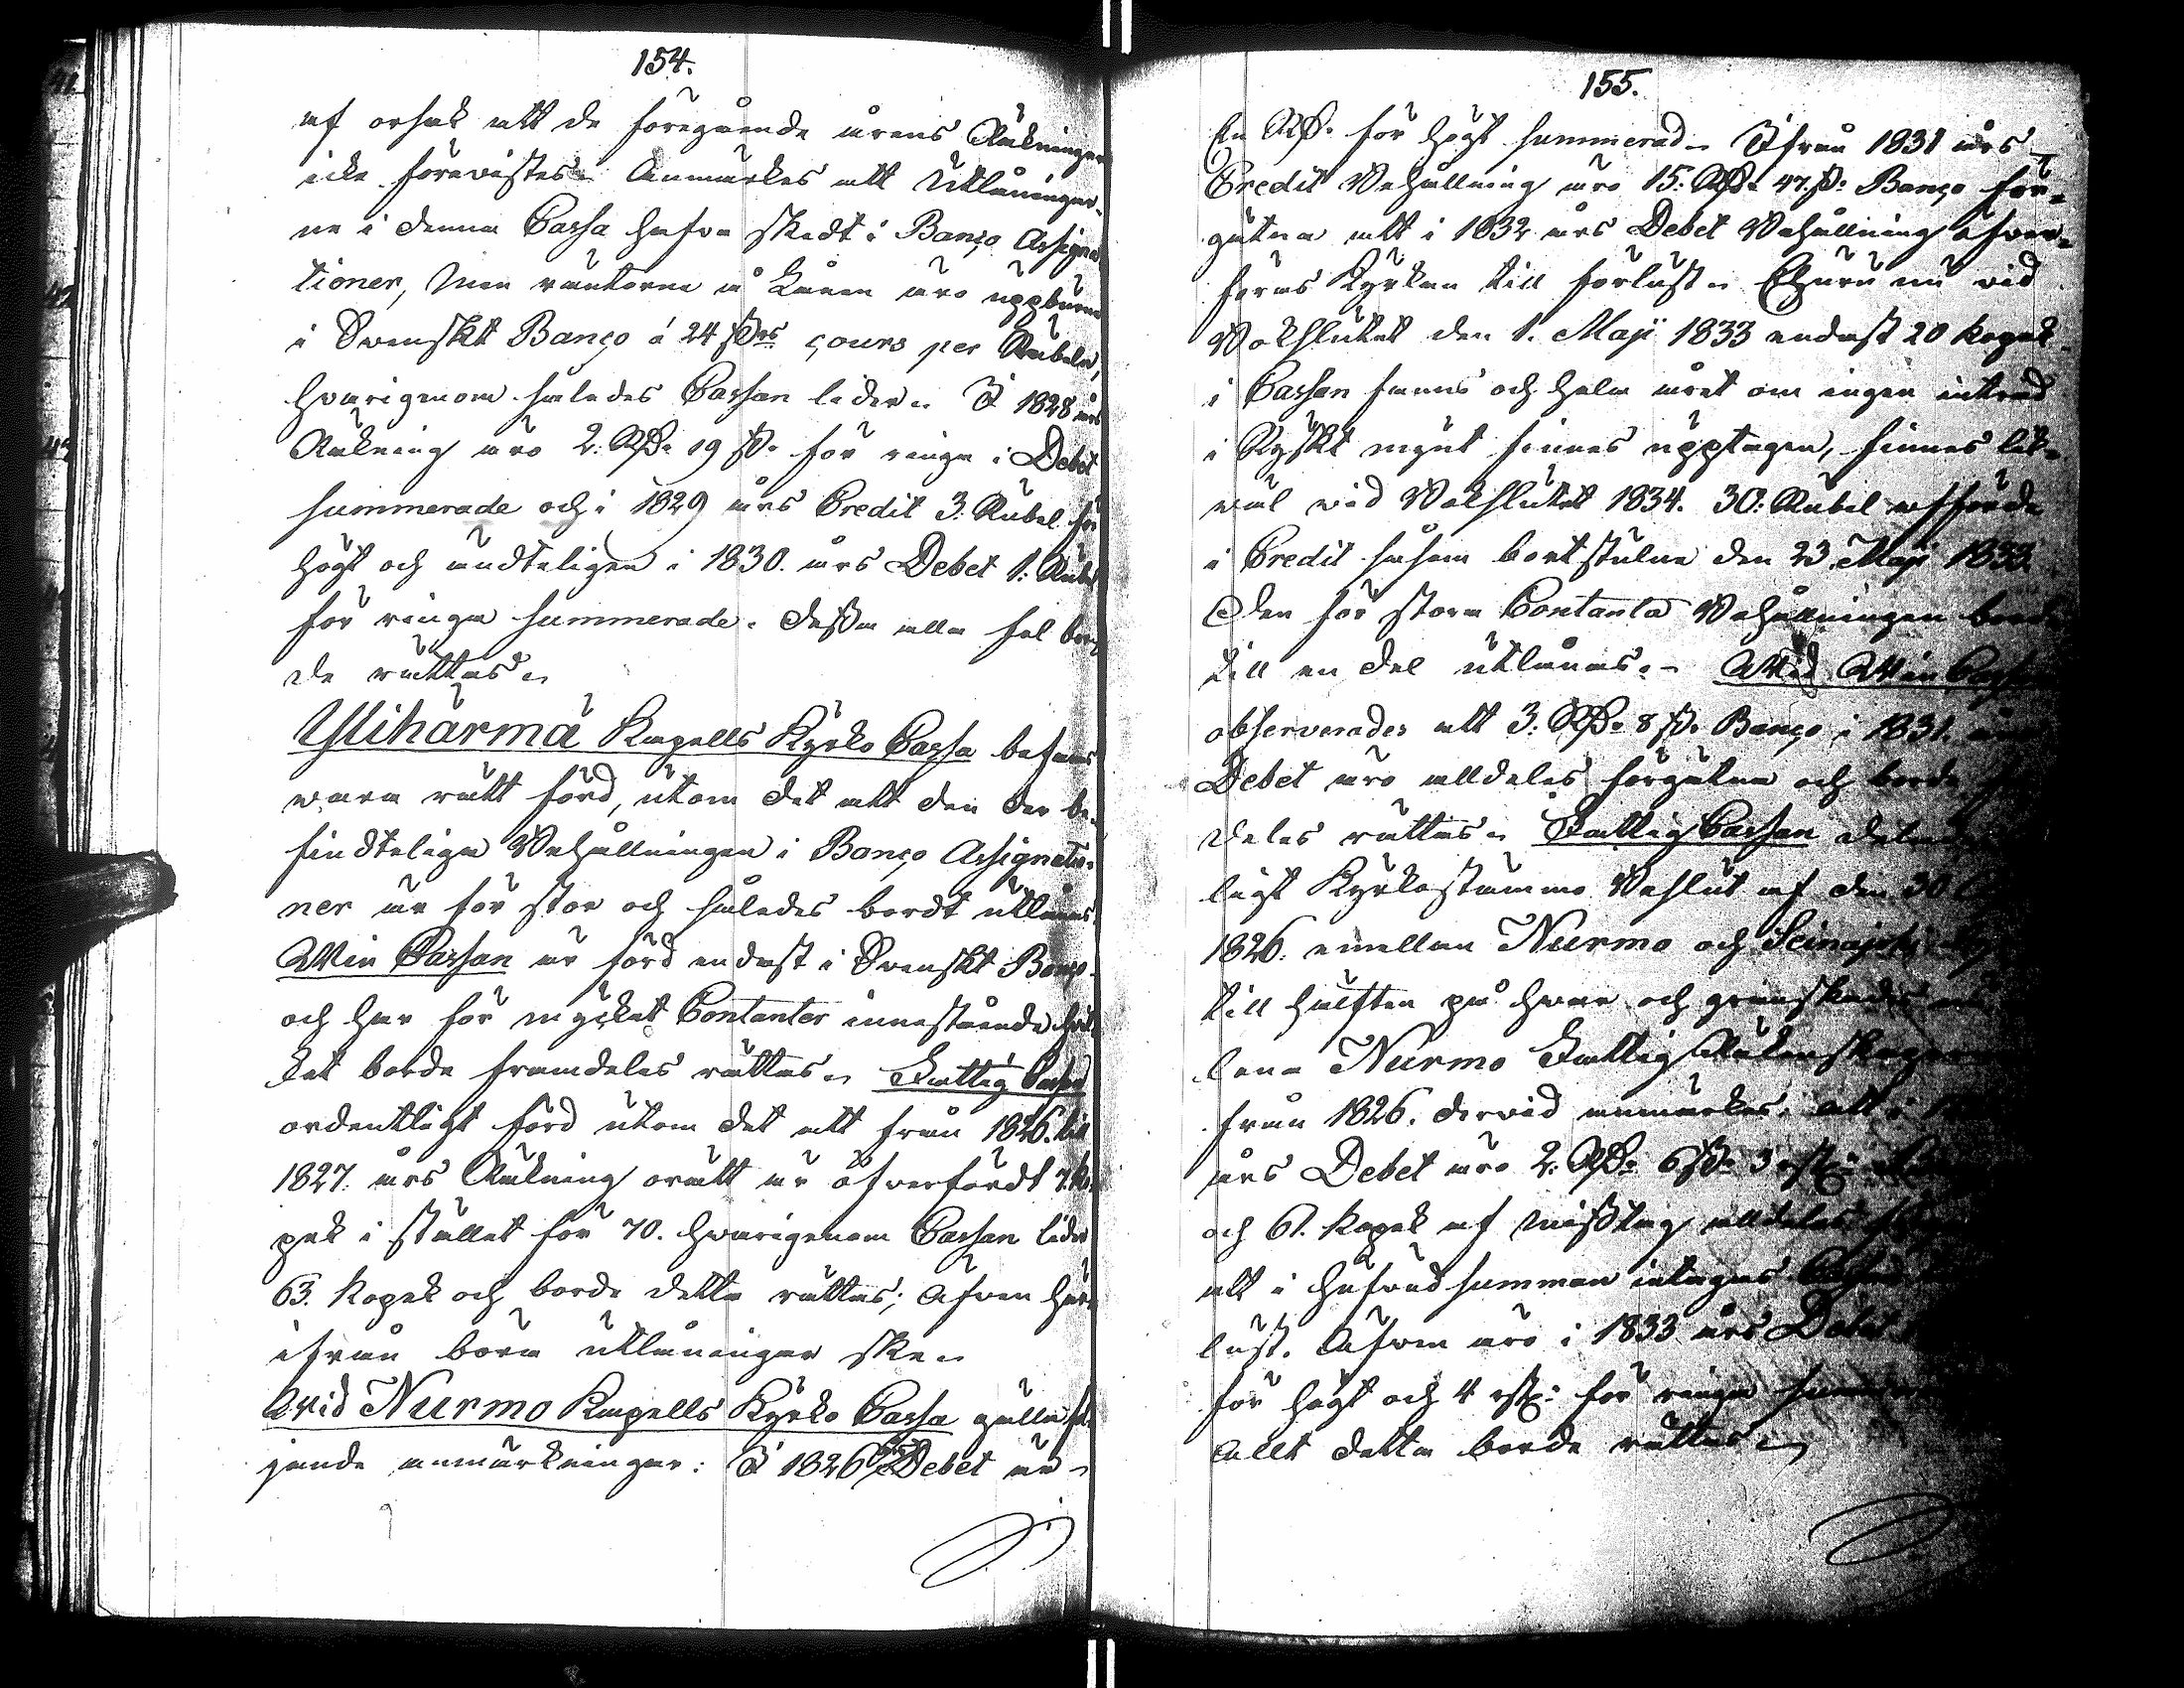 154.
af orsak att de föregående årens Räkningar
icke förevistes. Anmärkes att Utlåningar-
ne i denna Cassa hafva skedt i Banco Assigna
tioner, men räntorne å Lånen äro uppburne
i Svenskt Banco á 24 s. cours per Rubeln,
hvarigenom således Cassan lider. I 1828 års
Räkning äro 2. Rd. 19 s. för ringa i Debet
summerade och i 1829 års Credit 3. Rubel för
högt och ändteligen i 1830. års Debet 1. Rubel
för ringa summerade. Dessa alla fel bor-
de rättas.
Ylihärmä Kapells Kyrko Cassa befans
vara rätt förd, utom det att den der be-
findteliga Behållningen i Banco Assignatio-
ner är för stor och således bordt utlånas,
Win Cassan är förd endast i Svenskt Banco
och har för mycket Contanter innestående hvil
ket borde framdeles rättas. Fattig Cassan
ordentligt förd utom det att från 1826. till
1827. års Räkning orätt är öfverfördt 7. Ko-
pek i stället för 70. hvarigenom Cassan lider
63. Kopek och borde detta rättas; Äfven här
ifrån böra utlåningar ske.
Wid Nurmo Kapells Kyrko Cassa gälla föl
jande anmärkningar: I 1826 års Debet är
155.
En Rd. för högt summerad. Ifrån 1831 års
Credit Behållning äro 15. Rd. 47. s. Banco för-
gätna att i 1832 års Debet Behållning öfver-
föras Kyrkan till förlust. Ehuru nu vid
Bokslutet den 1. Maji 1833 endast 20 kopek
i Cassan fanns och hela året om ingen intrad
i Ryskt mynt finnes upptagen, finnes lik-
väl vid Bokslutet 1834. 30. Rubel afförde
i Credit såsom bortstulne den 23 Maji 1833.
Den för stora Contanta Behållningen borde
till en del utlånas. Wid Win Cassan
observerades att 3. Rd. 8 s. Banco i 1831.
Debet äro alldeles förgätna och borde
deles rättas. Fattig Cassan
ligt Kyrkostämmo Beslut af den 30
1826. emellan Nurmo och Seinäjoki
till hälften på hvar och granskades
lena Nurmo Fattig Räkenskaper
från 1826. dervid anmärkes; att i
års Debet äro 2. Rd. 6 s. 3 rst.
och 61. Kopek af misstag alldeles
att i hufvudsumman intagas Cassan
lust. Äfven äro i 1833 års Debet
för högt och 4 rst. för ringa
Allt detta borde rättas.